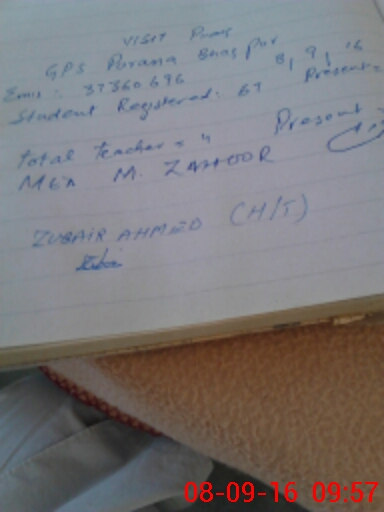 VISIT Proof
GPS Purana Bhaspur
Emis: 37360696 8, 9, 16
Student Registered: 67 Present=
Total Teacher = 4 Present =
MEA M. ZAHOOR
ZUBAIR AHMED (H/T)
08-09-16 09:57